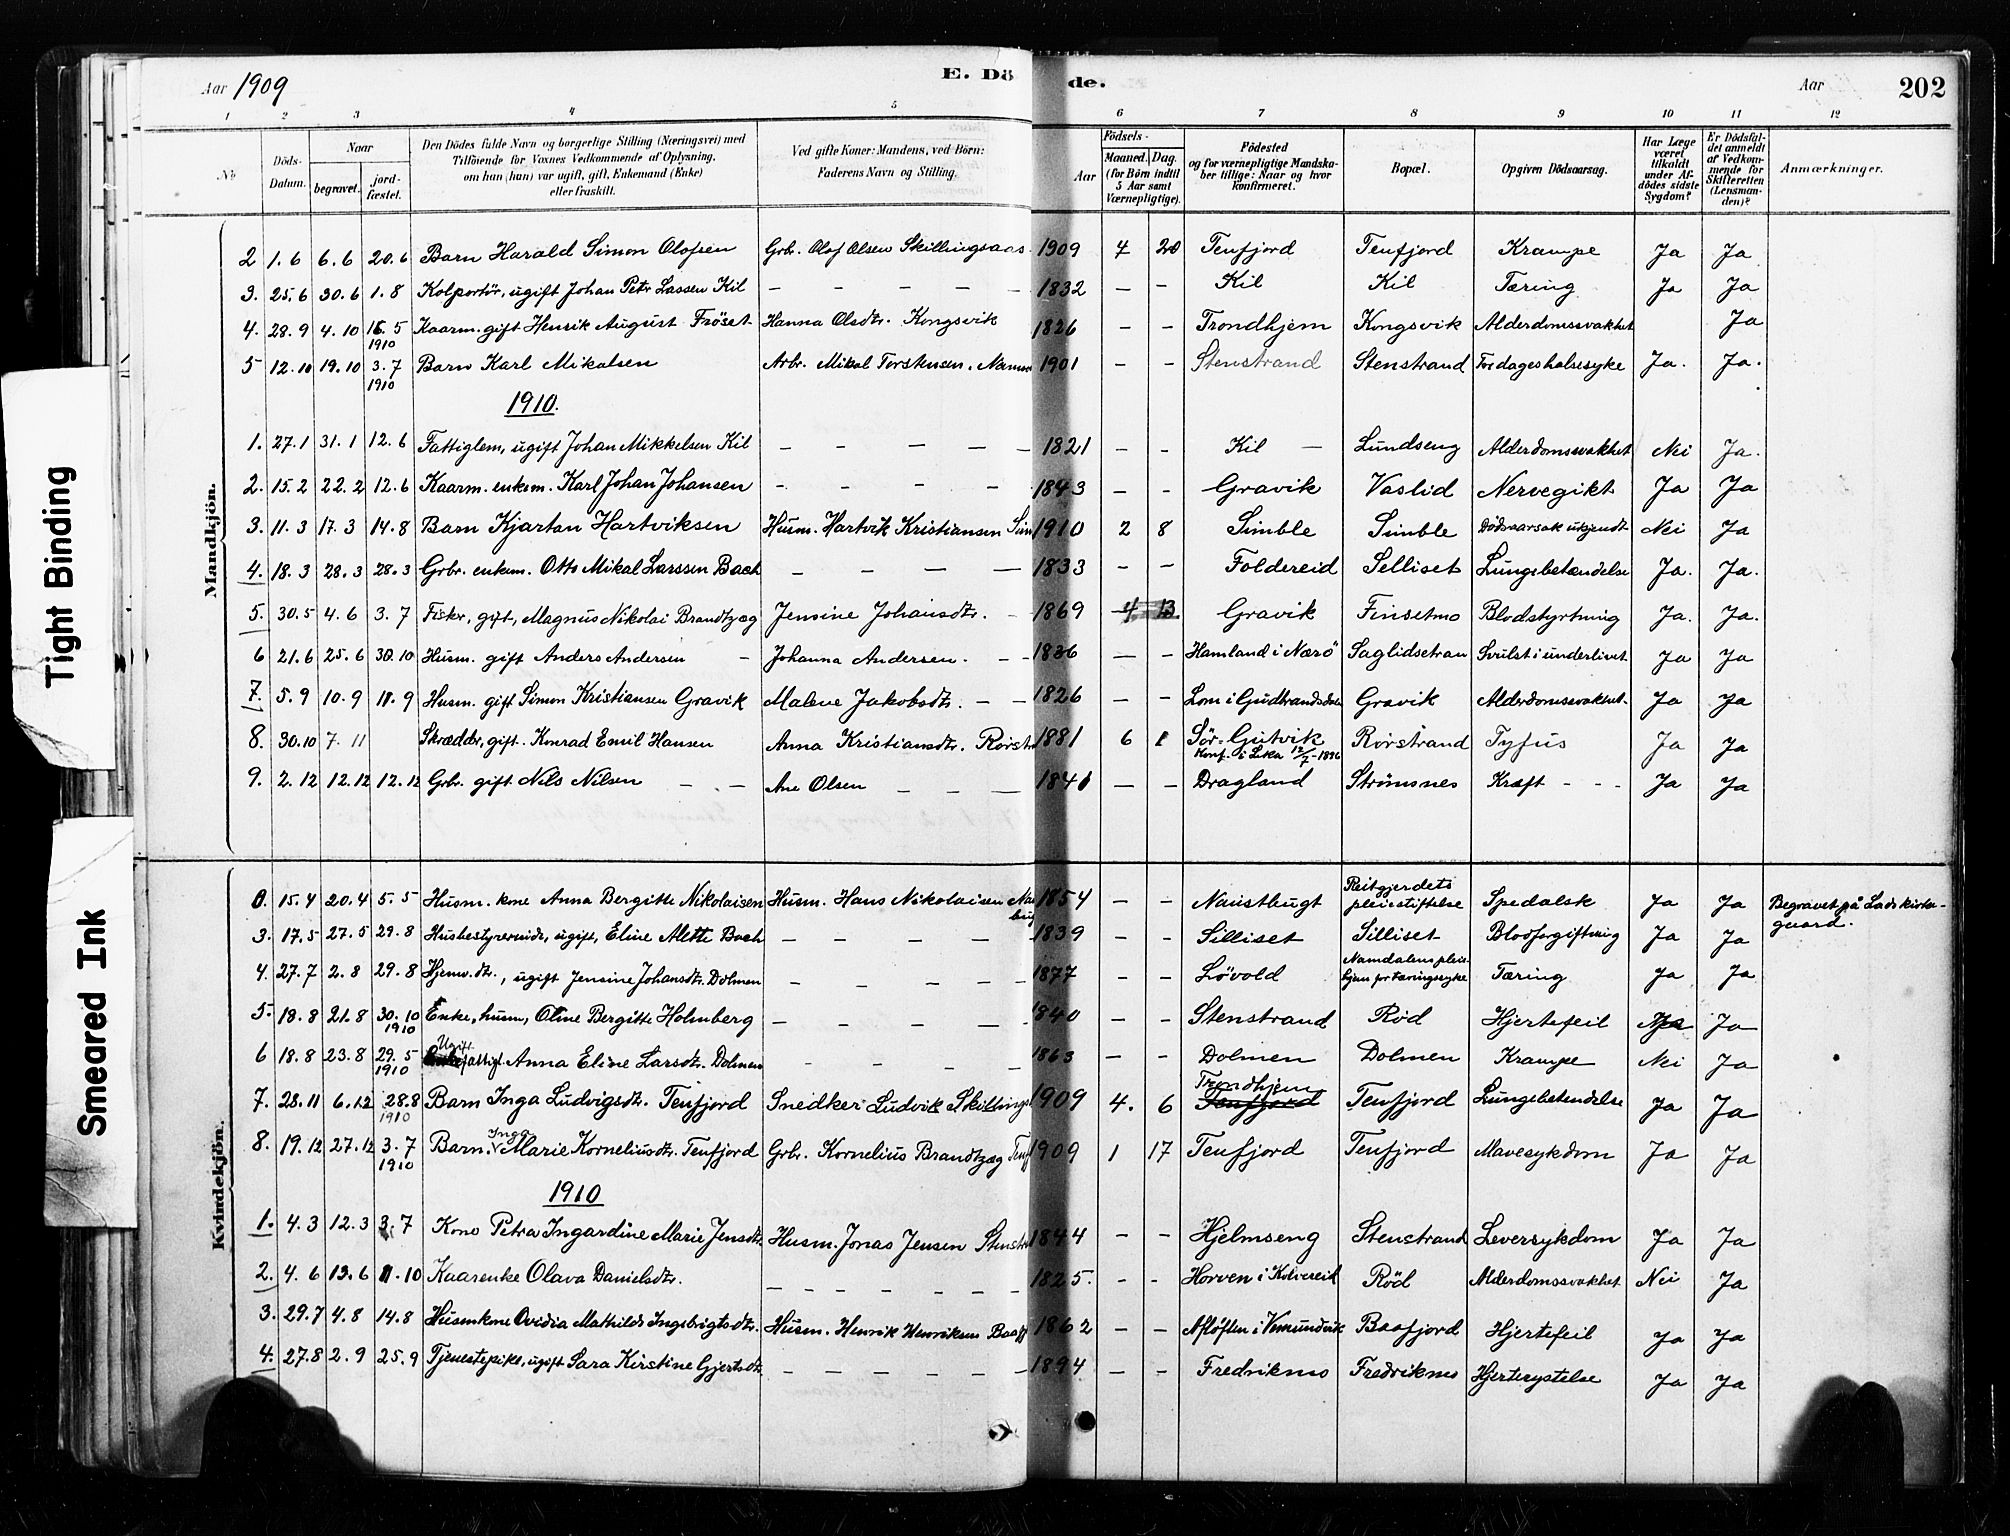 Tight Binding
Smeared Ink
Aar 1909
E. Dö de.
Aar 202
1 2 3 4 5 6 7 8 9 10 11 12
No
Döds-Datum.
Naar
begravet.
jord-fæstet.
Den Dödes fulde Navn og borgerlige Stilling (Næringsvei) med
Tilföiende for Voxnes Vedkommende af Oplysning,
om han (hun) var ugift, gift, Enkemand (Enke)
eller fraskilt.
Ved gifte Koner: Mandens, ved Börn:
Faderens Navn og Stilling.
Födsels-
Aar
Maaned. Dag.
(for Börn indtil
5 Aar samt
Værnepligtige).
Födested
og for værnepligtige Mandska-
ber tillige: Naar og hvor
konfirmeret.
Bopæl.
Opgiven Dödsaarsag.
Har Læge
været
tilkaldt
under Af-
dödes sidste
Sygdom?
Er Dödsfal-
det anmeldt
af Vedkom-
mende for
Skifteretten
(Lensman-
den)?
Anmærkninger.
Mandkjön.
2 1.6 6.6 20.6 Barn Harald Simon Olofsen Grbr. Olof Olsen Skillingsaas 1909 4 20 Tenfjord Tenfjord Krampe Ja Ja
3. 25.6 30.6 1.8 Kolportör, ugift Johan Petr Lassen Kil — — — — — 1832 — — Kil Kil Tæring Ja Ja
4. 28.9 4.10 16.5 1910 Kaarm. gift Henrik August Fröset Hanna Olsdtr. Kongsvik 1826 — — Trondhjem Kongsvik Alderdomssvakhet Ja
5 12.10 19.10 3.7 1910 Barn Karl Mikalsen Arbr. Mikal Torstensen, 1901 — — Stenstrand Stenstrand Ja. Ja.
1910.
1. 27.1 31.1 12.6 Fattiglem, ugift Johan Mikkelsen Kil — — — — — 1821 — — Kil — Lundseng Alderdomssvakhet Nei Ja.
2. 15.2 22.2 12.6 Kaarm. enkem. Karl Johan Johansen — — — — 1843 — — Gravik Vaslid Nervegikt Ja Ja
3. 11.3 17.3 14.8 Barn Kjartan Hartviksen Husm. Hartvik Kristiansen Sim 1910 2 8 Simble Simble Dödsaarsak ukjendt Nei Ja
4. 18.3 28.3 28.3 Grbr. enkem. Otto Mikal Larssen Bach — — — — 1833 — — Foldereid Selliset Lungebetændelse Ja. Ja.
5. 30.5 4.6 3.7 Fisker, gift, Magnus Nikolai Brandtzæg Jensine Johansdtr. — 1869 4 13 Gravik Finsetmo Blodstyrtning Ja. Ja.
6 21.6 25.6 30.10 Husm. gift Anders Andersen — Johanna Andersen. — — 1836 — — Hamland i Nærö Saglidsetran Svulst i underlivet Ja Ja
7. 5.9 10.9 11.9 Husm. gift Simon Kristiansen Gravik Malene Jakobsdtr. — — 1826 — — Lom i Gudbrandsdalen Gravik Alderdomssvakhet. Ja Ja
8. 30.10 7.11 Skrædder, gift. Konrad Emil Hansen Anna Kristiansdtr. Rörstr 1881 6 1 Sör-Gutvik Rörstrand Tyfus Ja Ja
Konf. i Leka 12/7-1896
9. 2.12 12.12 12.12 Grbr. gift Nils Nilsen — — Ane Olsen — — — 1841 — — Dragland Strömsnes Kræft - - - Ja Ja
Kvindekjön.
15.4 20.4 5.5 Husm. kone Anna Bergitte Nikolaisen Husm. Hans Nikolaisen 1854 — — Naustbugt Reitgjerdets pleiestiftelse Spedalsk Ja Ja Begravet på Lade kirke-
gaard.
3. 17.5 27.5 29.8 Husbestyrerinde, ugift, Eline Alette Bach — — — — 1839 — — Silliset Silliset Blodforgiftning Ja Ja
4. 27.7 2.8 29.8 Hjemv. dtr., ugift Jensine Johansdtr. Dolmen — — — — — 1877 — — Lövold Namdalens pleie-
hjem for tæringssyke Tæring Ja Ja
5. 18.8 21.8 30.10 1910 Enke, husm, Oline Bergitte Holmberg — — — — 1840 — — Stenstrand Röd Hjertefeil Ja Ja
6 18.8 23.8 29.5 1910 Ugift fattigl. Anna Eline Larsdtr. Dolmen — — — — 1863 — — Dolmen Dolmen Krampe Nei Ja
7. 28.11 6.12 28.8 1910 Barn Inga Ludvigsdtr. Tenfjord Snedker Ludvik Skillings 1909 4. 6 Trondhjem Tenfjord Tenfjord Lungebetendelse Ja Ja
8. 19.12 27.12 3.7 1910 Barn. Inga Marie Korneliusdtr. Tenfjord Grbr. Kornelius Brandtzæg Tenf 1909 1 17 Tenfjord Tenfjord Mavesykdom Ja Ja
1910
1. 4.3 12.3 3.7 Kone Petra Ingardine Marie Jensdtr. Husm. Jonas Jensen Stenstr 1844 — — Hjelmseng Stenstrand Leversykdom Ja Ja
2. 4.6 13.6 11.10 Kaarenke Olava Danielsdtr. — — — — — — 1825. — — Horven i Kolvereid Röd Alderdomssvakhet Nei Ja
3. 29.7 4.8 14.8 Husmkone Ovidia Mathilde Ingebrigtsdtr. Husm. Henrik Henriksen Baafj 1862 — — Aflöften i Vemundvik Baafjord Hjertefeil Ja Ja
4. 27.8 2.9 25.9 Tjenestepike, ugift Sara Kirstine Gjertsdtr. — — — — — — 1894 — — Fredriknes Fredriknes Hjerterystelse Ja Ja